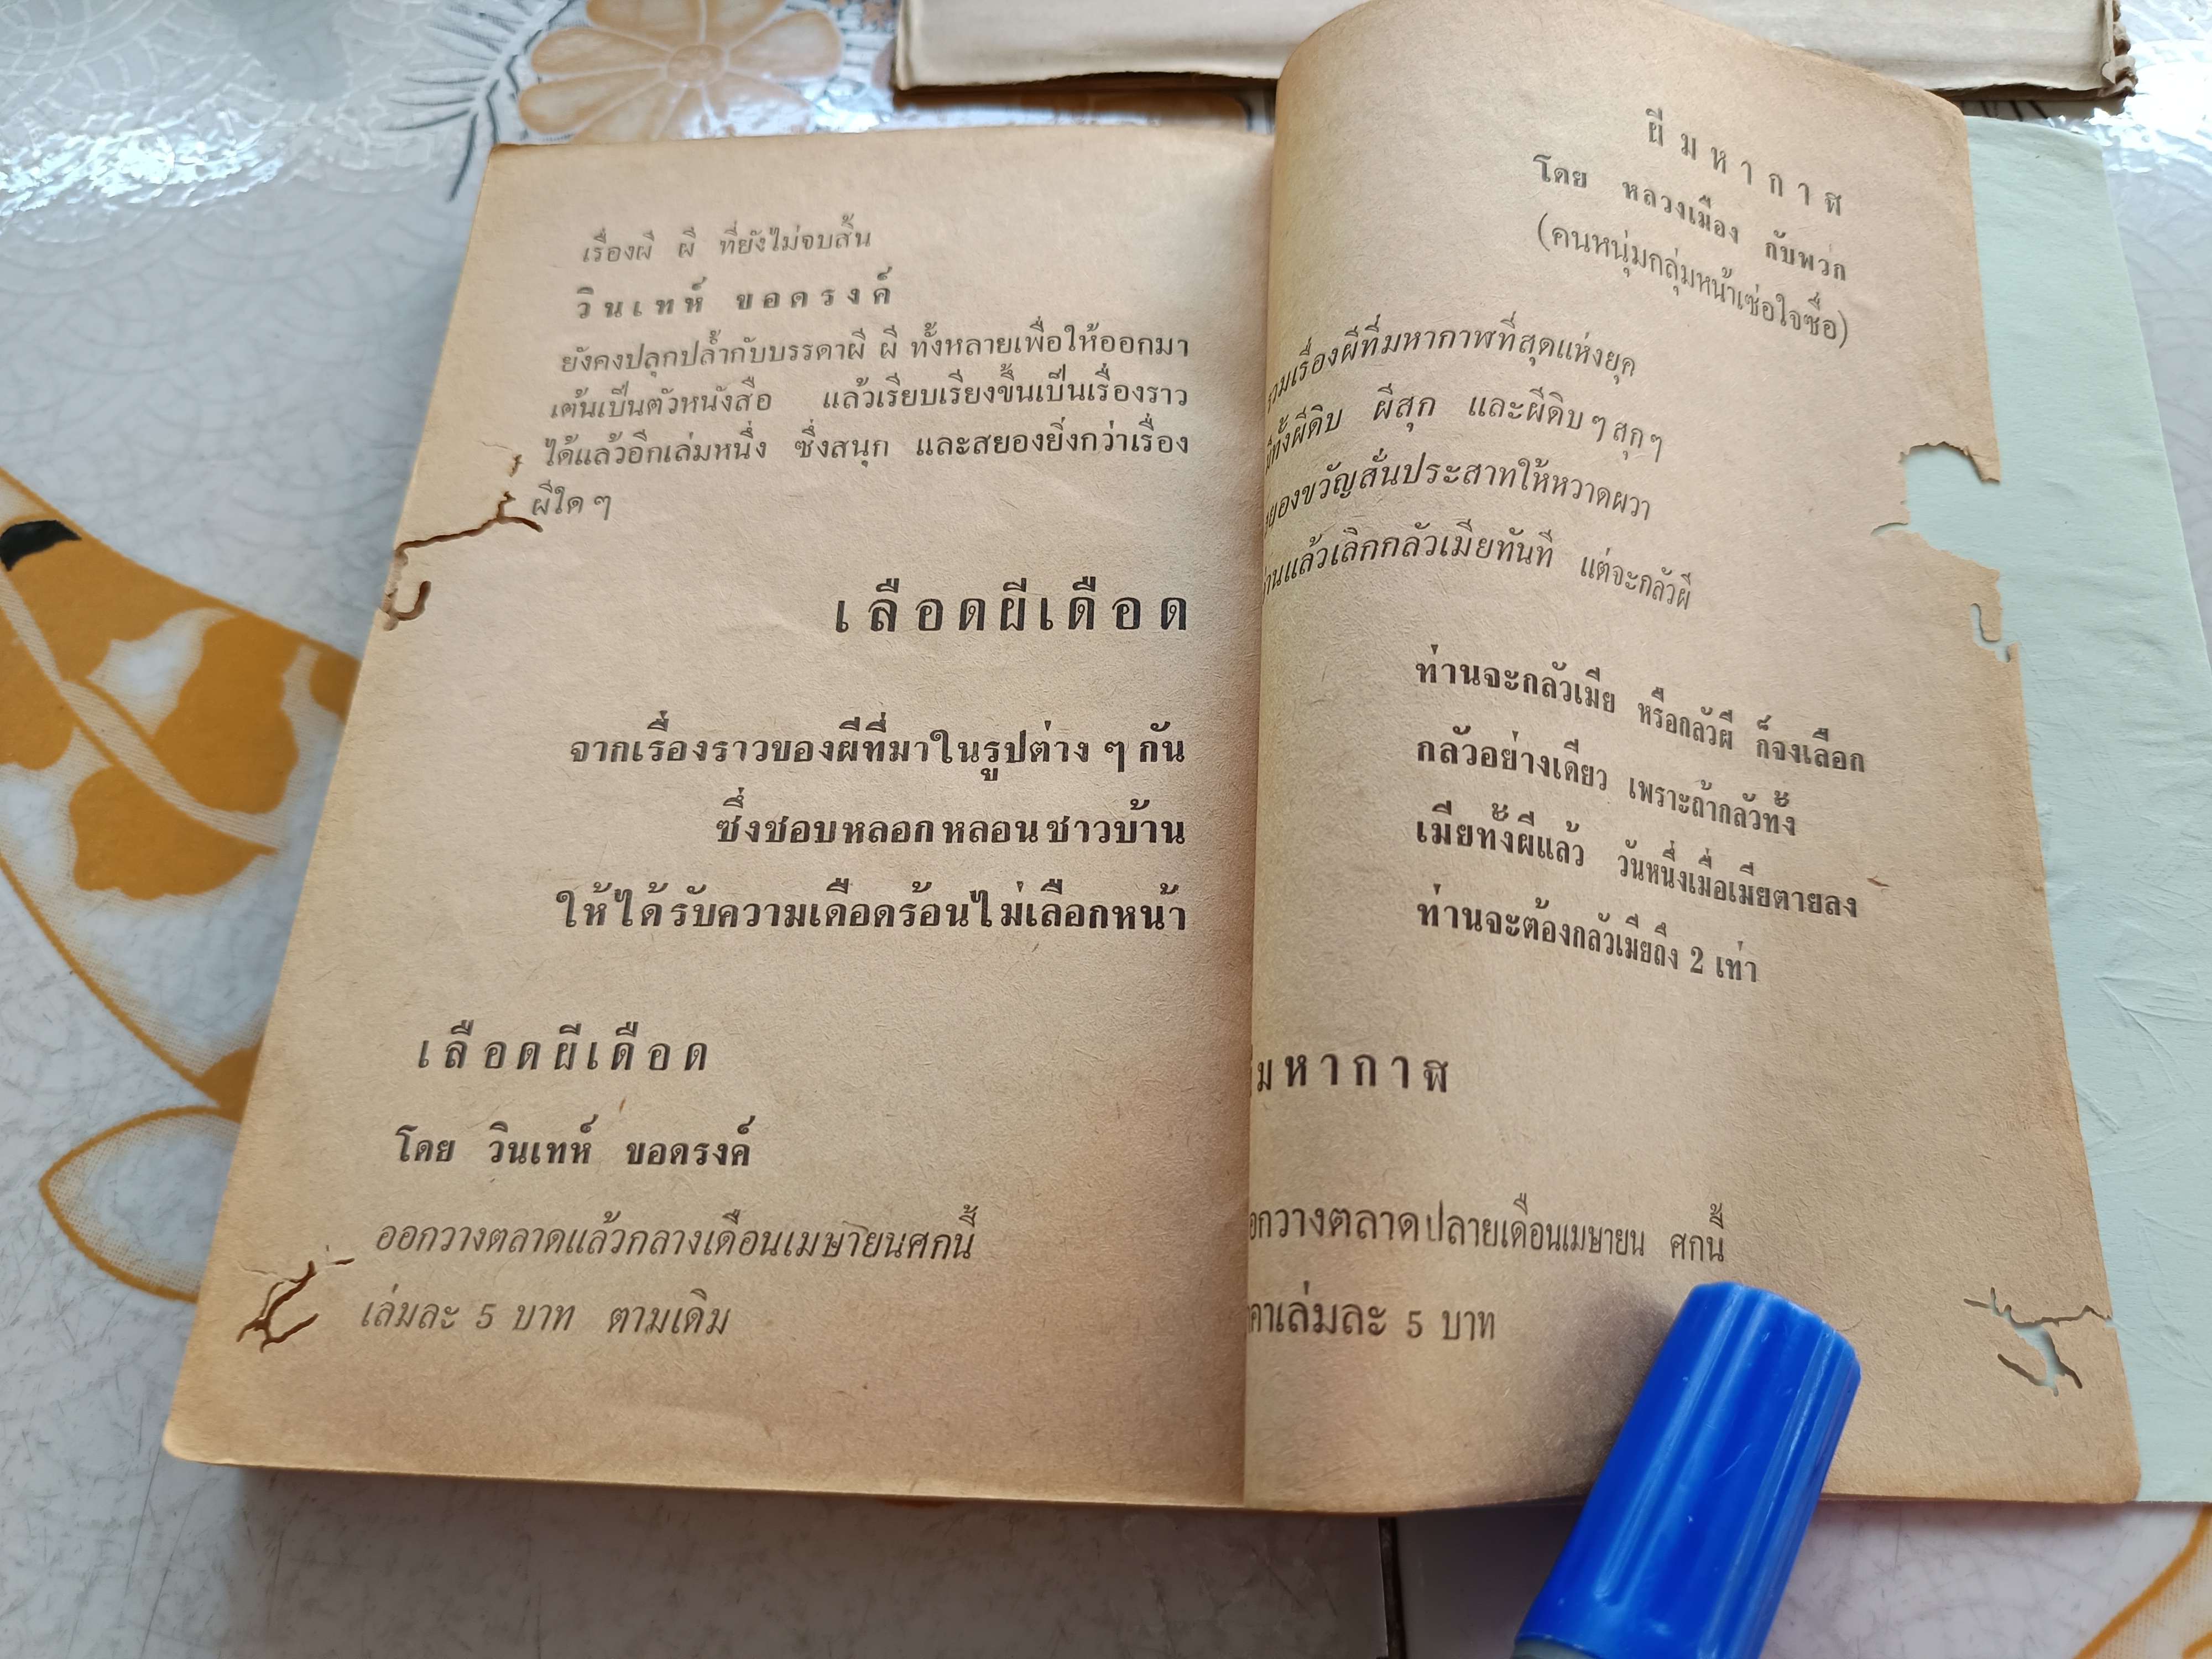 เรื่องผี ผี ที่ยังไม่จบสิ้น
วินเทห์ ขอดรงค์
ยังคงปลุกปล้ำกับบรรดาผี ผี ทั้งหลายเพื่อให้ออกมา
เต้นเป็นตัวหนังสือ แล้วเรียบเรียงขึ้นเป็นเรื่องราว
ได้แล้วอีกเล่มหนึ่ง ซึ่งสนุก และสยองยิ่งกว่าเรื่อง
ผีใด ๆ
เลือดผีเดือด
จากเรื่องราวของผีที่มาในรูปต่าง ๆ กัน
ซึ่งชอบหลอกหลอนชาวบ้าน
ให้ได้รับความเดือดร้อนไม่เลือกหน้า
เลือดผีเดือด
โดย วินเทห์ ขอดรงค์
ออกวางตลาดแล้วกลางเดือนเมษายนศกนี้
เล่มละ 5 บาท ตามเดิม
ผีมหากาฬ
โดย หลวงเมือง กับพวก
(คนหนุ่มกลุ่มหน้าเซ่อใจซื่อ)
รวมเรื่องผีที่มหากาฬที่สุดแห่งยุค
มีทั้งผีดิบ ผีสุก และผีดิบ ๆ สุก ๆ
สยองขวัญสั่นประสาทให้หวาดผวา
อ่านแล้วเลิกกลัวเมียทันที แต่จะกลัวผี
ท่านจะกลัวเมีย หรือกลัวผี ก็จงเลือก
กลัวอย่างเดียว เพราะถ้ากลัวทั้ง
เมียทั้งผีแล้ว วันหนึ่งเมื่อเมียตายลง
ท่านจะต้องกลัวเมียถึง 2 เท่า
มหากาฬ
อกวางตลาดปลายเดือนเมษายน ศกนี้
คาเล่มละ 5 บาท